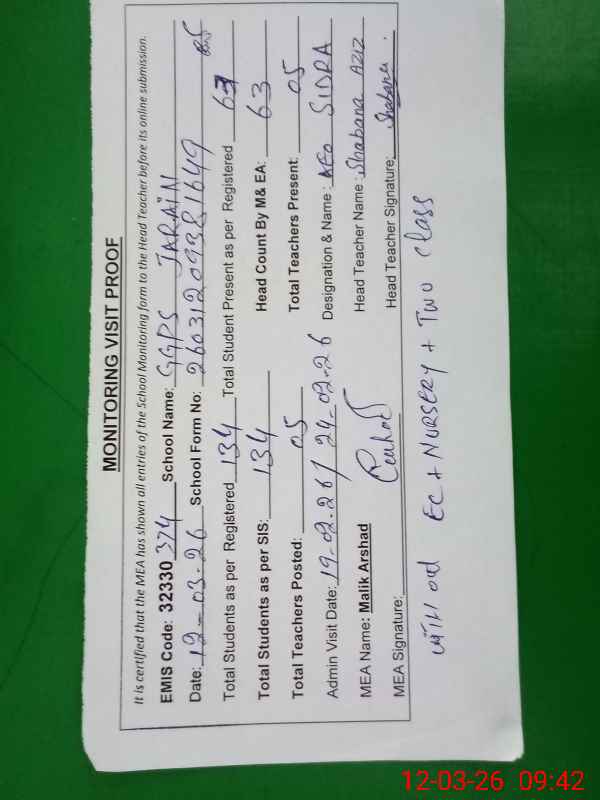 MONITORING VISIT PROOF
It is certified that the MEA has shown all entries of the School Monitoring form to the Head Teacher before its online submission.
EMIS Code: 32330 374 School Name: GGPS JARAIN
Date: 12-03-26 School Form No: 260312093381649
Total Students as per Registered 134 Total Student Present as per Registered 63
Total Students as per SIS: 134 Head Count By M& EA: 63
Total Teachers Posted: 05 Total Teachers Present: 05
Admin Visit Date: 19-02-26/ 24-02-26 Designation & Name: AEO SIDRA
MEA Name: Malik Arshad Head Teacher Name: Shabana AZIZ
MEA Signature: Head Teacher Signature: Shabana
with out EC + NURSERY + TWO class
12-03-26 09:42